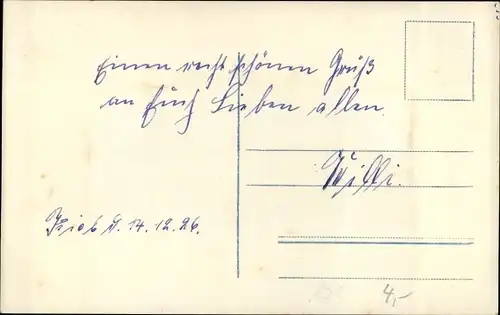 Einen recht schönen Gruß
an Euch Lieben allen.
Willi.
14.12.26.
4,-